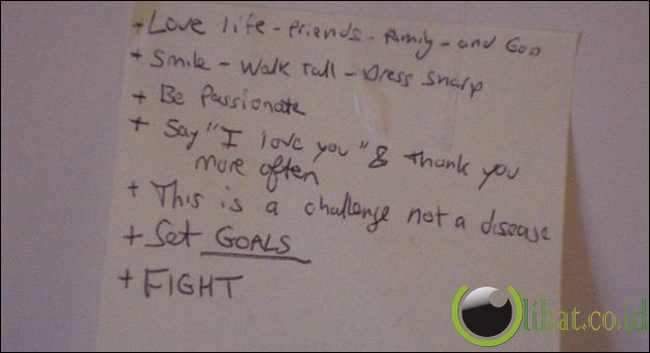 + Love life - Friends - Family - and God
+ Smile - Walk Tall - Dress Sharp
+ Be Passionate
+ Say "I love you" & thank you
more often
+ This is a challenge not a disease
+ Set GOALS
+ FIGHT
lihat.co.id